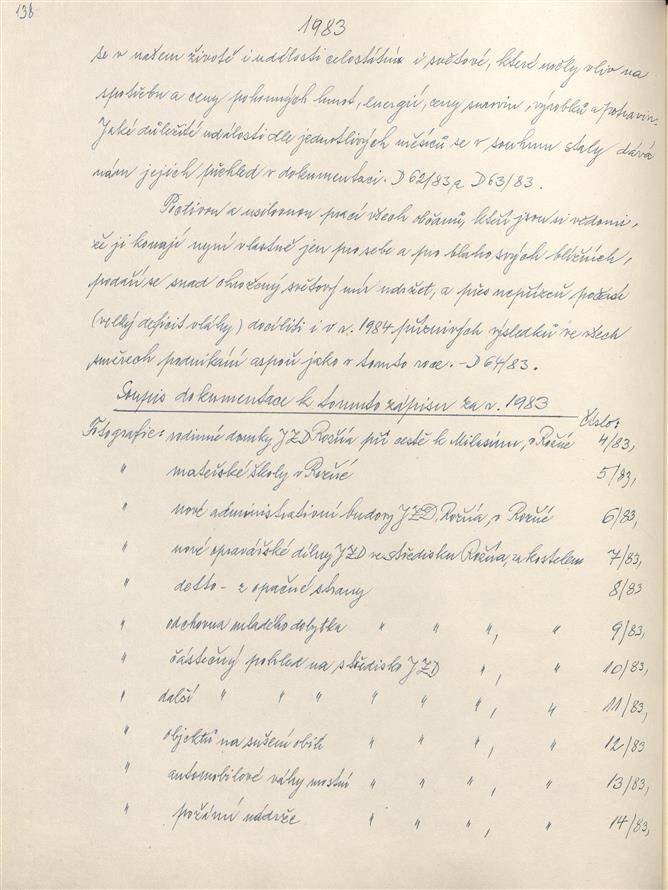 138
1983
se v našem životě i události celostátní i světové, které měly vliv na
spotřebu a ceny pohonných hmot, energií, ceny surovin, výrobků a potravin.
Jaké důležité události dle jednotlivých měsíců se v souhrnu staly dává
nám jejich přehled v dokumentaci. D 62/83 a D 63/83.
Poctivou a usilovnou prací všech občanů, kteří jsou si vědomi,
že ji konají nyní vlastně jen pro sebe a pro blaho svých bližních,
podaří se snad ohrožený světový mír udržet, a přes nepřízeň počasí
(velký deficit vláhy) docíliti i v r. 1984 příznivých výsledků ve všech
směrech podnikání aspoň jako v tomto roce. - D 64/83.
Soupis dokumentace k tomuto zápisu za r. 1983
Číslo:
Fotografie: rodinné domky JZD Rožná při cestě k Milasínu, v Rožné 4/83,
" mateřské školy v Rožné 5/83,
" nové administrativní budovy JZD, Rožná, v Rožné 6/83,
" nové opravářské dílny JZD ve středisku Rožná, za kostelem 7/83,
" detto - z opačné strany 8/83
" odchovna mladého dobytka " " ", " 9/83,
" částečný pohled na středisko JZD ", " 10/83,
" další " " " " " ", " 11/83,
" objektů na sušení obilí " " ", " 12/83
" automobilové váhy mostní " " ", " 13/83,
" požární nádrže " ", " 14/83,